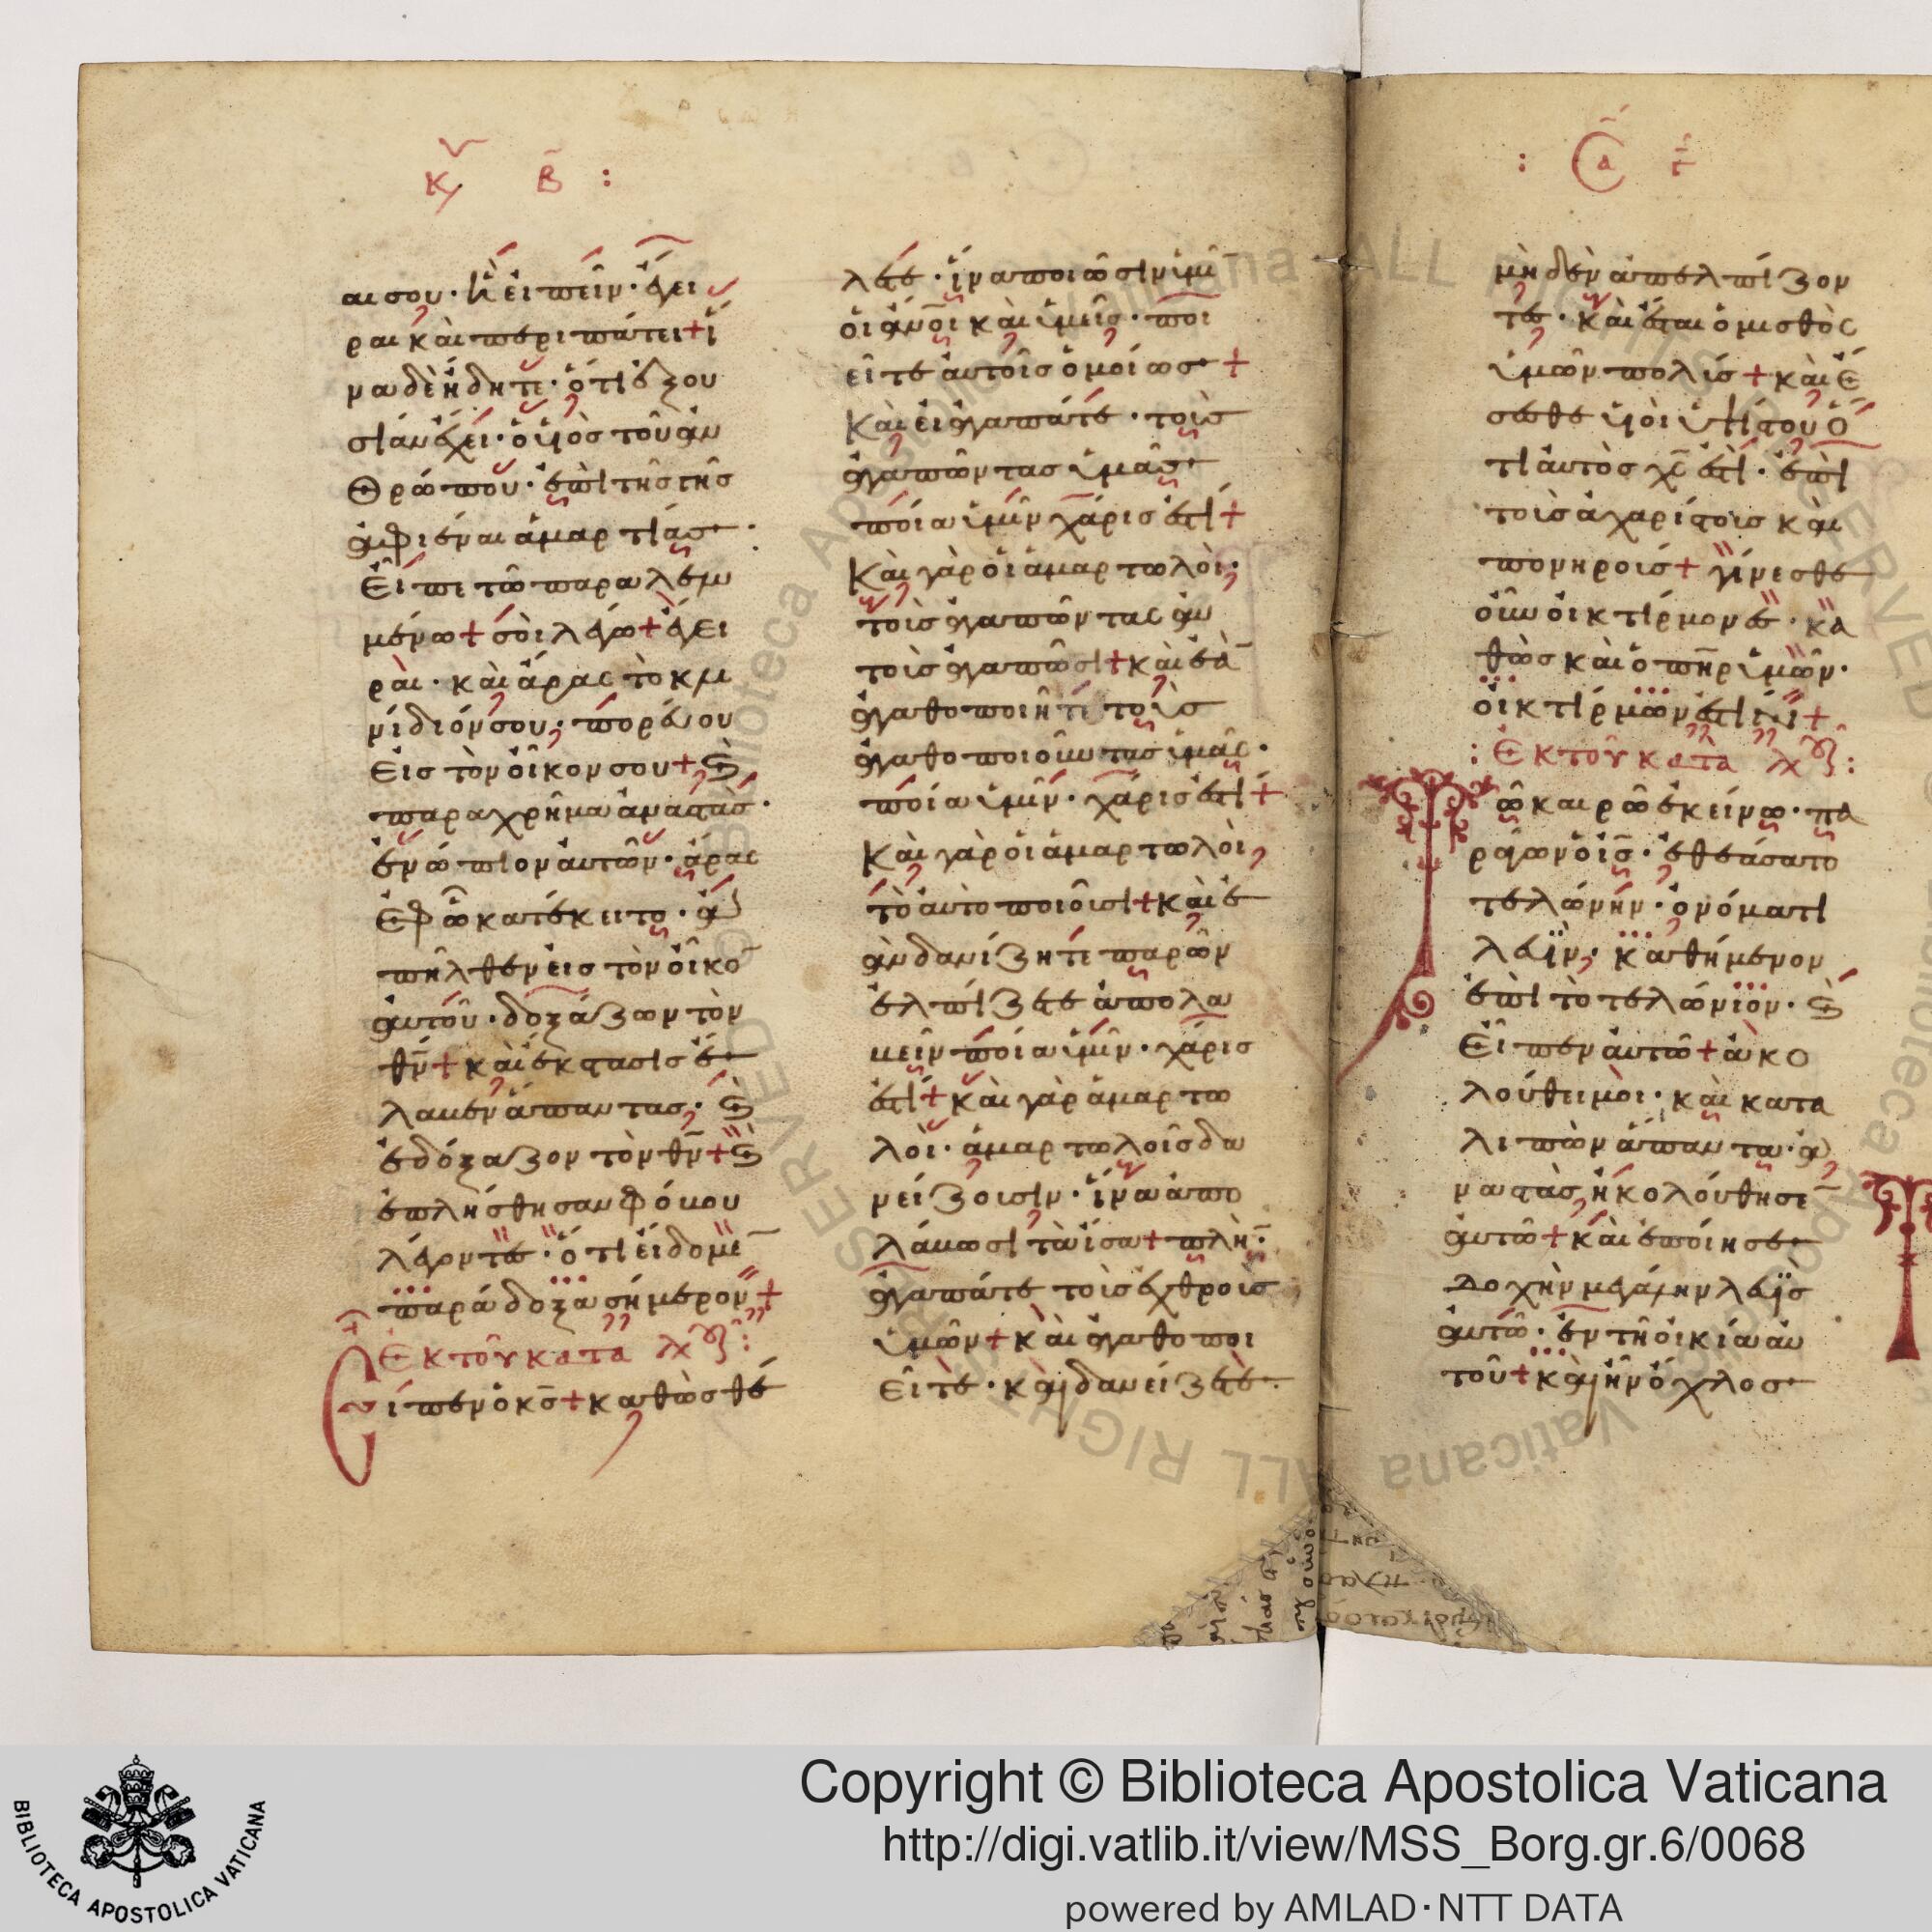 Κυ Β :
αι σου · ἢ εἰπεῖν · ἔγει
ραι καὶ περιπάτει + ἵ
να δὲ ἤδητε · ὅτι ἐξου
σίαν ἔχει · ὁ υἱὸς τοῦ ἀν
θρώπου · ἐπὶ τῆς γῆς
ἀφιέναι ἁμαρτίας ·
Εἶπε τῶ παραλελυ
μένω + σοὶ λέγω + ἔγει
ραι · καὶ ἄρας τὸ κλι
νίδιόν σου, πορεύου
εἰς τὸν οἶκον σου + καὶ
παραχρῆμα ἀναστὰς ·
ἐνώπιον αὐτῶν · ἄρας
ἐφ ὧ κατέκειτο · ἀ
πῆλθεν εἰς τὸν οἶκο
αὐτοῦ · δοξάζων τὸν
θν + καὶ ἔκστασις ἔ
λαβεν ἅπαντας, καὶ
ἐδόξαζον τὸν θν + καὶ
ἐπλήσθησαν φόβου
λέγοντες · ὅτι εἴδομε
παράδοξα σήμερον +
Ἐκ τοῦ κατὰ λχ :
Εἶπεν ὁ κς + καθὼς θέ
λετε · ἵνα ποιῶσιν ὑμῖ
οἱ ἀνοι καὶ ὑμεῖς · ποι
εῖτε αὐτοῖς ὁμοίως +
Καὶ εἰ ἀγαπάτε · τοὺς
ἀγαπῶντας ὑμᾶς
ποία ὑμῖν χάρις ἐστί +
Καὶ γὰρ οἱ ἁμαρτωλοὶ,
τοὺς ἀγαπῶντας αὐ
τοὺς ἀγαπῶσι + καὶ ἐὰ
ἀγαθοποιῆτε τοὺς
ἀγαθοποιοῦντας ὑμᾶς ·
ποία ὑμῖν · χάρις ἐστί +
Καὶ γὰρ οἱ ἁμαρτωλοὶ,
τὸ αὐτὸ ποιοῦσι + καὶ ἐ
ὰν δανίζητε παρ ὧν
ἐλπίζετε ἀπολα
βεῖν ποία ὑμῖν · χάρις
ἐστί + καὶ γὰρ ἁμαρτω
λοὶ · ἁμαρτωλοῖς δα
νείζουσιν · ἵνα ἀπο
λάβωσι τὰ ἴσα + πλὴ ·
ἀγαπάτε τοὺς ἐχθροὺς
ὑμῶν + καὶ ἀγαθοποι
εῖτε · καὶ δανείζετε ·
: Ϲα τ
μηδὲν ἀπελπίζον
τες · καὶ ἔσται ὁ μισθὸς
ὑμῶν πολύς + καὶ ἔ
σεσθε υἱοὶ ὑψίστου ὅ
τι αὐτὸς χς ἐστὶ · ἐπὶ
τοὺς ἀχαρίστους καὶ
πονηρούς + γίνεσθε
οὖν οἰκτίρμονες · κα
θὼς καὶ ὁ πηρ ὑμῶν ·
οἰκτίρμων ἐστίν +
: Ἐκ τοῦ κατὰ λχ :
Τῶ καιρῶ ἐκείνω · πα
ράγων ὁ ις · ἐθεάσατο
τελώνην · ὀνόματι
λευὶν, καθήμενον
ἐπὶ τὸ τελώνιον · καὶ
εἶπεν αὐτῶ + ἀκο
λούθει μοι · καὶ κατα
λιπὼν ἅπαντα · ἀ
ναστὰς, ἠκολούθησε
αὐτῶ + καὶ ἐποίησε
δοχὴν μεγάλην λευὶς
αὐτῶ · ἐν τῆ οἰκία αὐ
τοῦ + καὶ ἦν ὄχλος